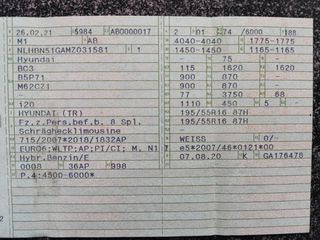 26.02.21 5984 AB0000017 2 01 74 /6000 188
M1 AB 4040-4040 1775-1775
NLHBN51GAMZ031581 1 1450-1450 1165-1165
Hyundai - 75 -
BC3 115 1620 1620
B5P71 900 870 -
M62CZ1 900 870 -
- 77 3750 68
i20 1110 450 5 -
HYUNDAI (TR) 195/55R16 87H
Fz.z.Pers.bef.b. 8 Spl. 195/55R16 87H
Schräghecklimousine -
715/2007*2018/1832AP WEISS 0/-
EURO6;WLTP;AP;PI/CI; M, N1 7 e5*2007/46*0121*00
Hybr.Benzin/E 07.08.20 K GA176478
0008 36AP 998
P.4:4500-6000*